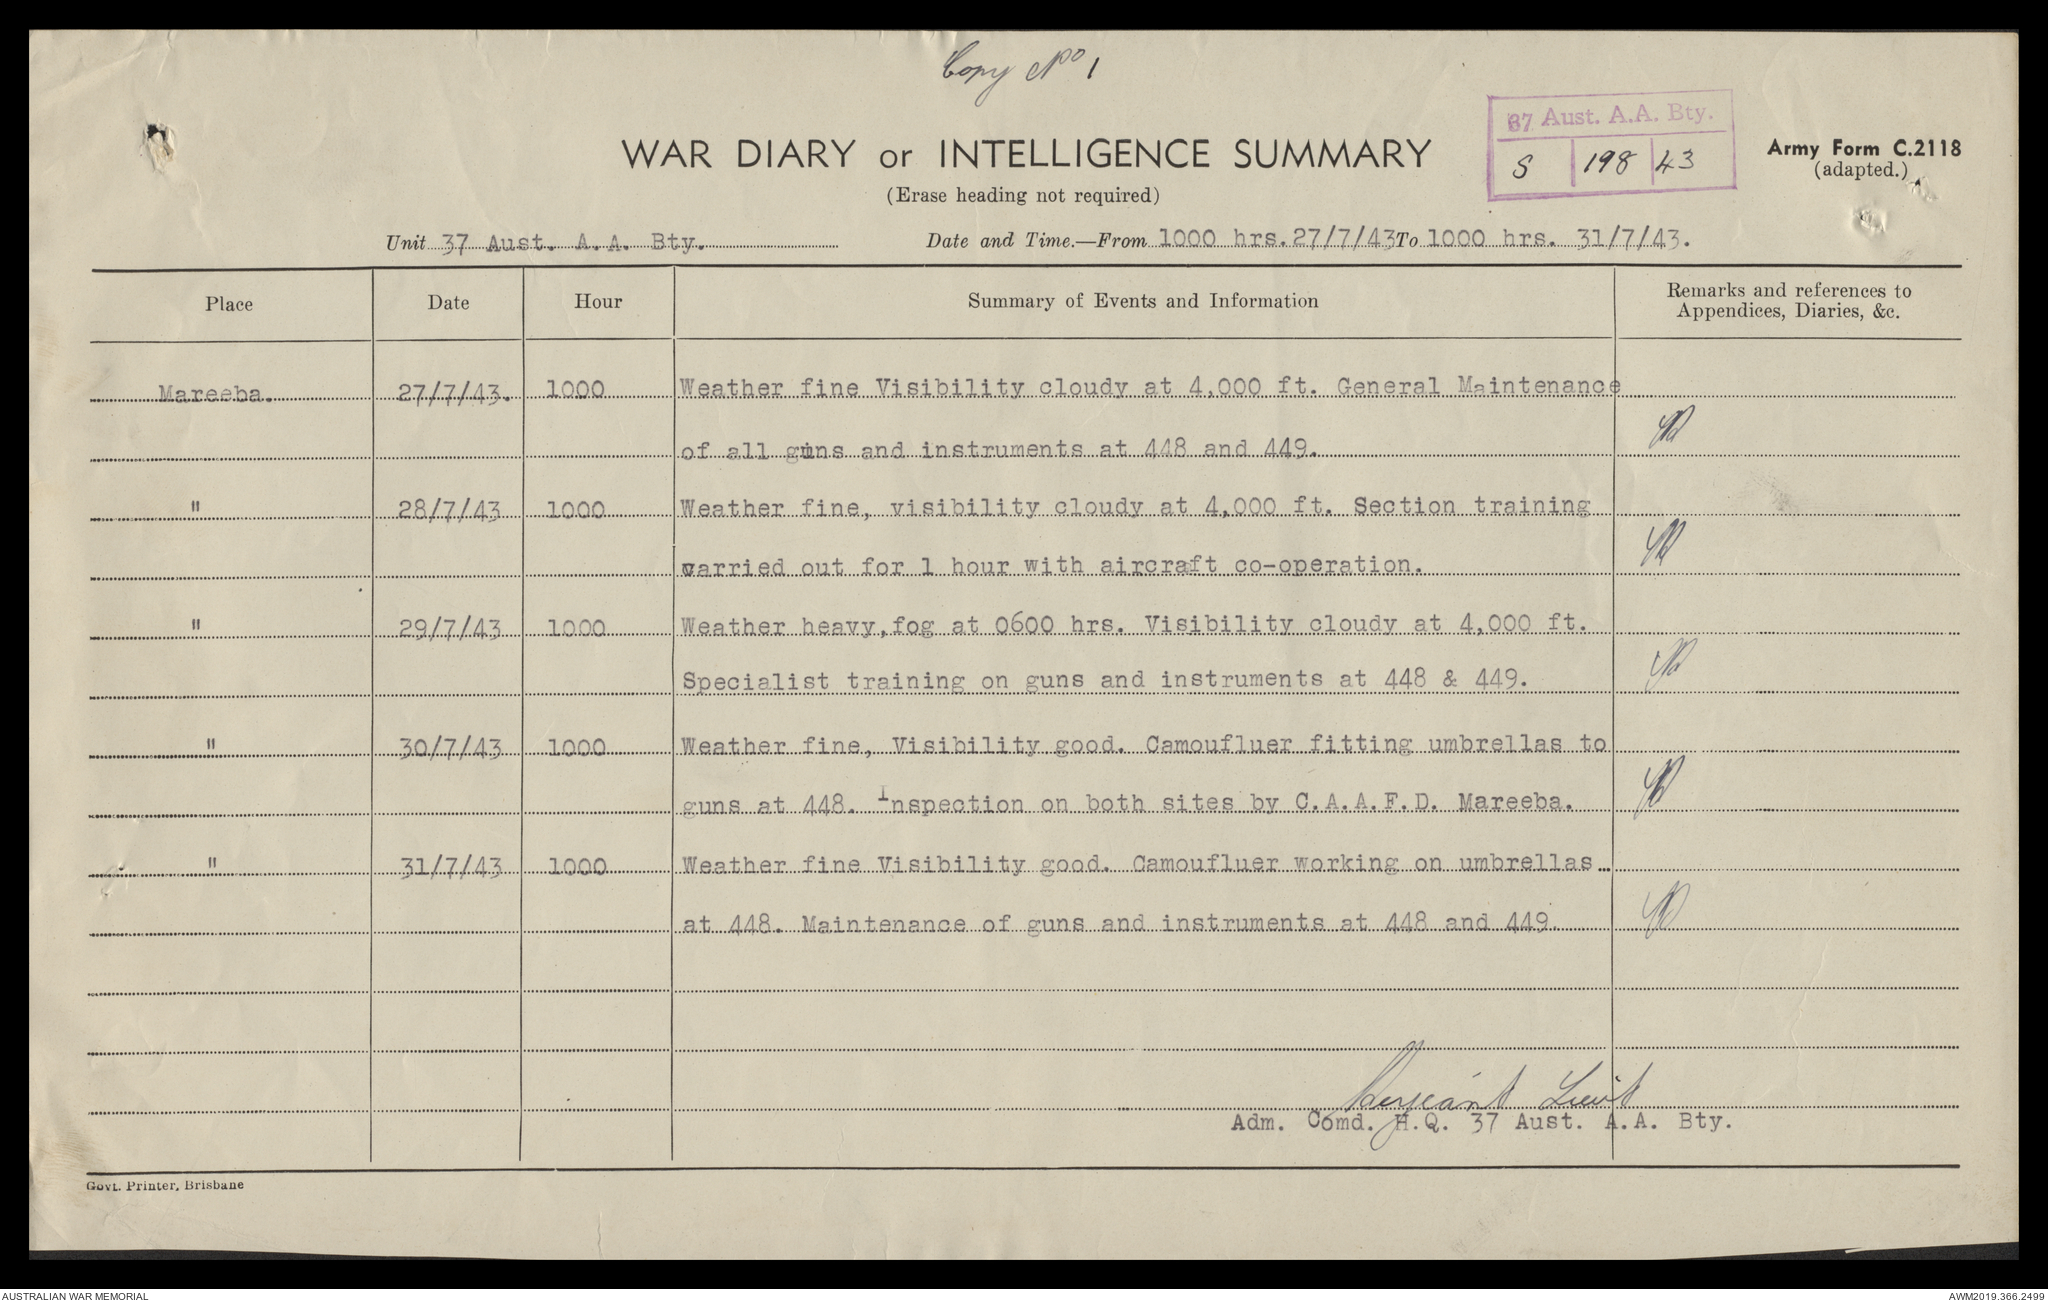 Copy No 1
37 Aust. A.A. Bty.
S 198 43
WAR DIARY or INTELLIGENCE SUMMARY
Army Form C.2118
(adapted.)
(Erase heading not required)
Unit 37 Aust. A.A. Bty. Date and Time.—From 1000 hrs. 27/7/43 To 1000 hrs. 31/7/43.
Place Date Hour Summary of Events and Information Remarks and references to Appendices, Diaries, &c.
Mareeba. 27/7/43. 1000 Weather fine Visibility cloudy at 4,000 ft. General Maintenance
of all guns and instruments at 448 and 449.
" 28/7/43 1000 Weather fine, visibility cloudy at 4,000 ft. Section training
carried out for 1 hour with aircraft co-operation.
" 29/7/43 1000 Weather heavy, fog at 0600 hrs. Visibility cloudy at 4,000 ft.
Specialist training on guns and instruments at 448 & 449.
" 30/7/43 1000 Weather fine, Visibility good. Camoufluer fitting umbrellas to
guns at 448. Inspection on both sites by C.A.A.F.D. Mareeba.
" 31/7/43 1000 Weather fine Visibility good. Camoufluer working on umbrellas
at 448. Maintenance of guns and instruments at 448 and 449.
Lieut
Adm. Comd. H.Q. 37 Aust. A.A. Bty.
Govt. Printer, Brisbane
AUSTRALIAN WAR MEMORIAL
AWM2019.366.2499